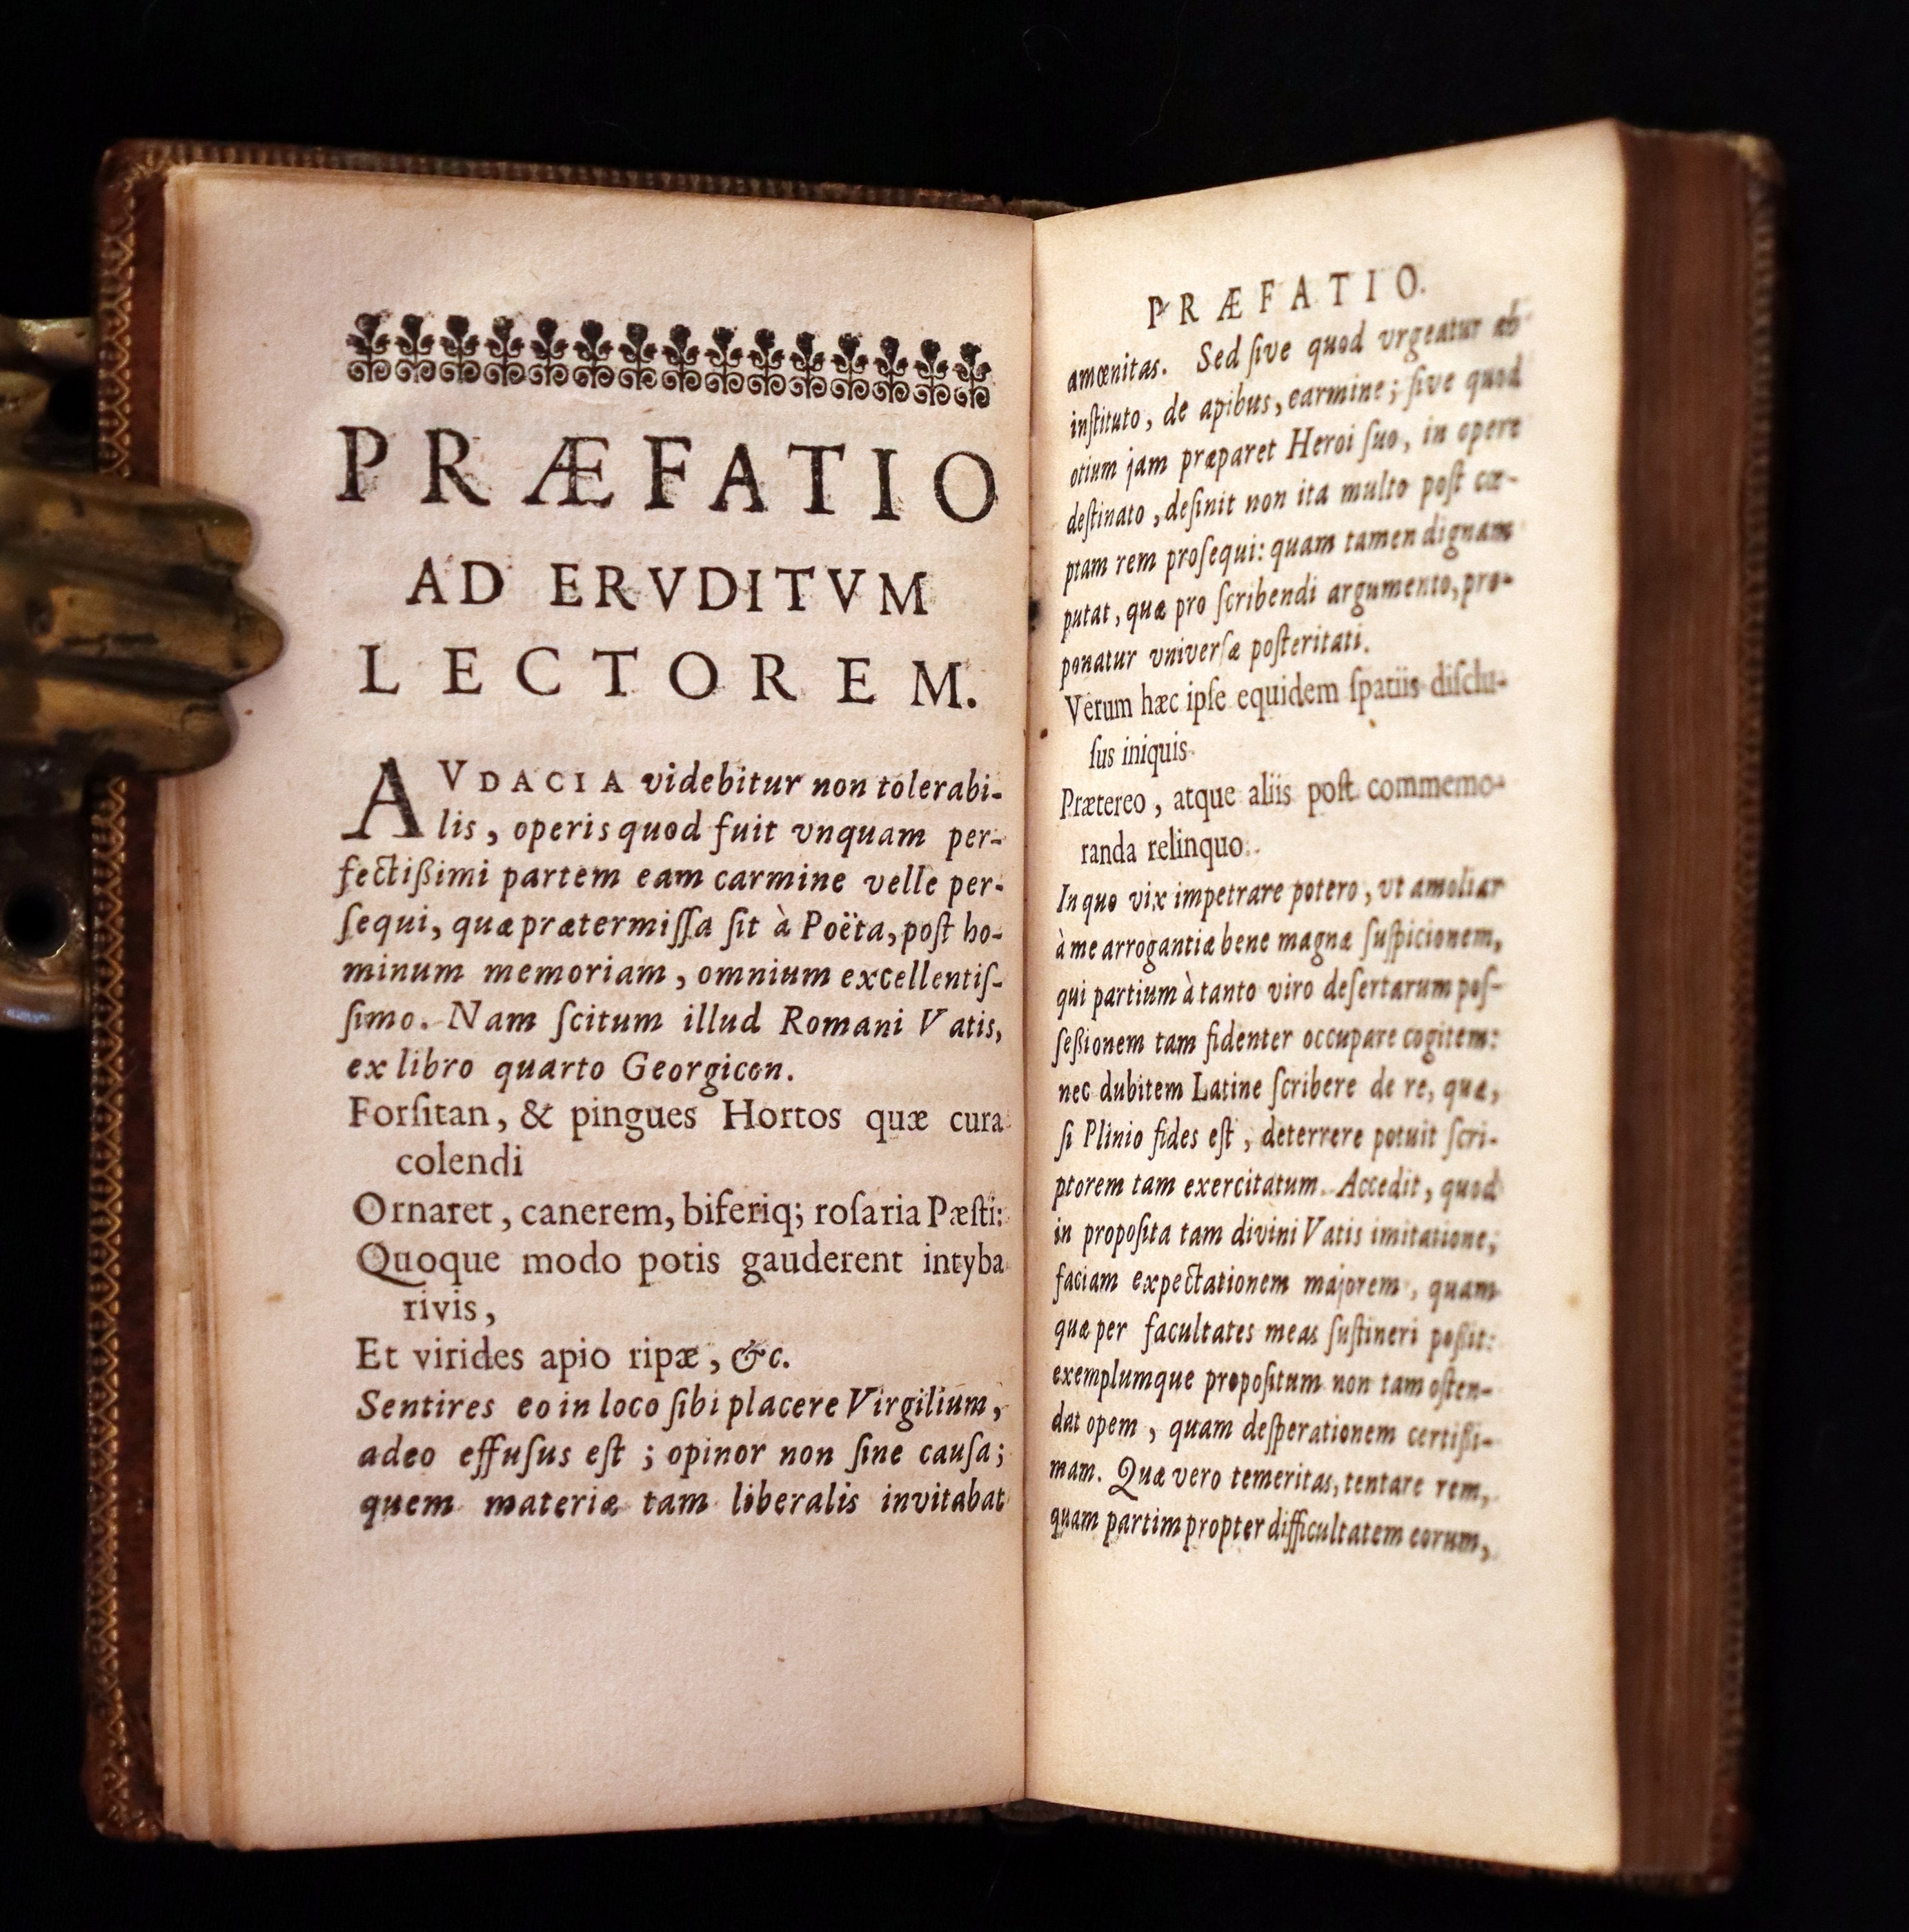 PRÆFATIO
AD ERVDITVM
LECTOREM.
AVDACIA videbitur non tolerabi-
lis, operis quod fuit vnquam per-
fectißimi partem eam carmine velle per-
ſequi, quæ prætermiſſa ſit à Poëta, poſt ho-
minum memoriam, omnium excellentiſ-
ſimo. Nam ſcitum illud Romani Vatis,
ex libro quarto Georgicon.
Forſitan, & pingues Hortos quæ cura
colendi
Ornaret, canerem, biferiq; roſaria Pæſti:
Quoque modo potis gauderent intyba
rivis,
Et virides apio ripæ, &c.
Sentires eo in loco ſibi placere Virgilium,
adeo effuſus eſt; opinor non ſine cauſa;
quem materiæ tam liberalis invitabat
PRÆFATIO.
amœnitas. Sed ſive quod vrgeatur ab
inſtituto, de apibus, earmine; ſive quod
otium jam præparet Heroi ſuo, in opere
deſtinato, deſinit non ita multo poſt cœ-
ptam rem proſequi: quam tamen dignam
putat, quæ pro ſcribendi argumento, pro-
ponatur vniverſæ poſteritati.
Verum hæc ipſe equidem ſpatiis diſclu-
ſus iniquis
Prætereo, atque aliis poſt commemo-
randa relinquo.
In quo vix impetrare potero, vt amoliar
à me arrogantiæ bene magnæ ſuſpicionem,
qui partium à tanto viro deſertarum poſ-
ſeßionem tam fidenter occupare cogitem:
nec dubitem Latine ſcribere de re, quæ,
ſi Plinio fides eſt, deterrere potuit ſcri-
ptorem tam exercitatum. Accedit, quod
in propoſita tam divini Vatis imitatione,
faciam expectationem majorem, quam
quæ per facultates meas ſuſtineri poſſit:
exemplumque propoſitum non tam oſten-
dat opem, quam deſperationem certißi-
mam. Quæ vero temeritas, tentare rem,
quam partim propter difficultatem eorum,